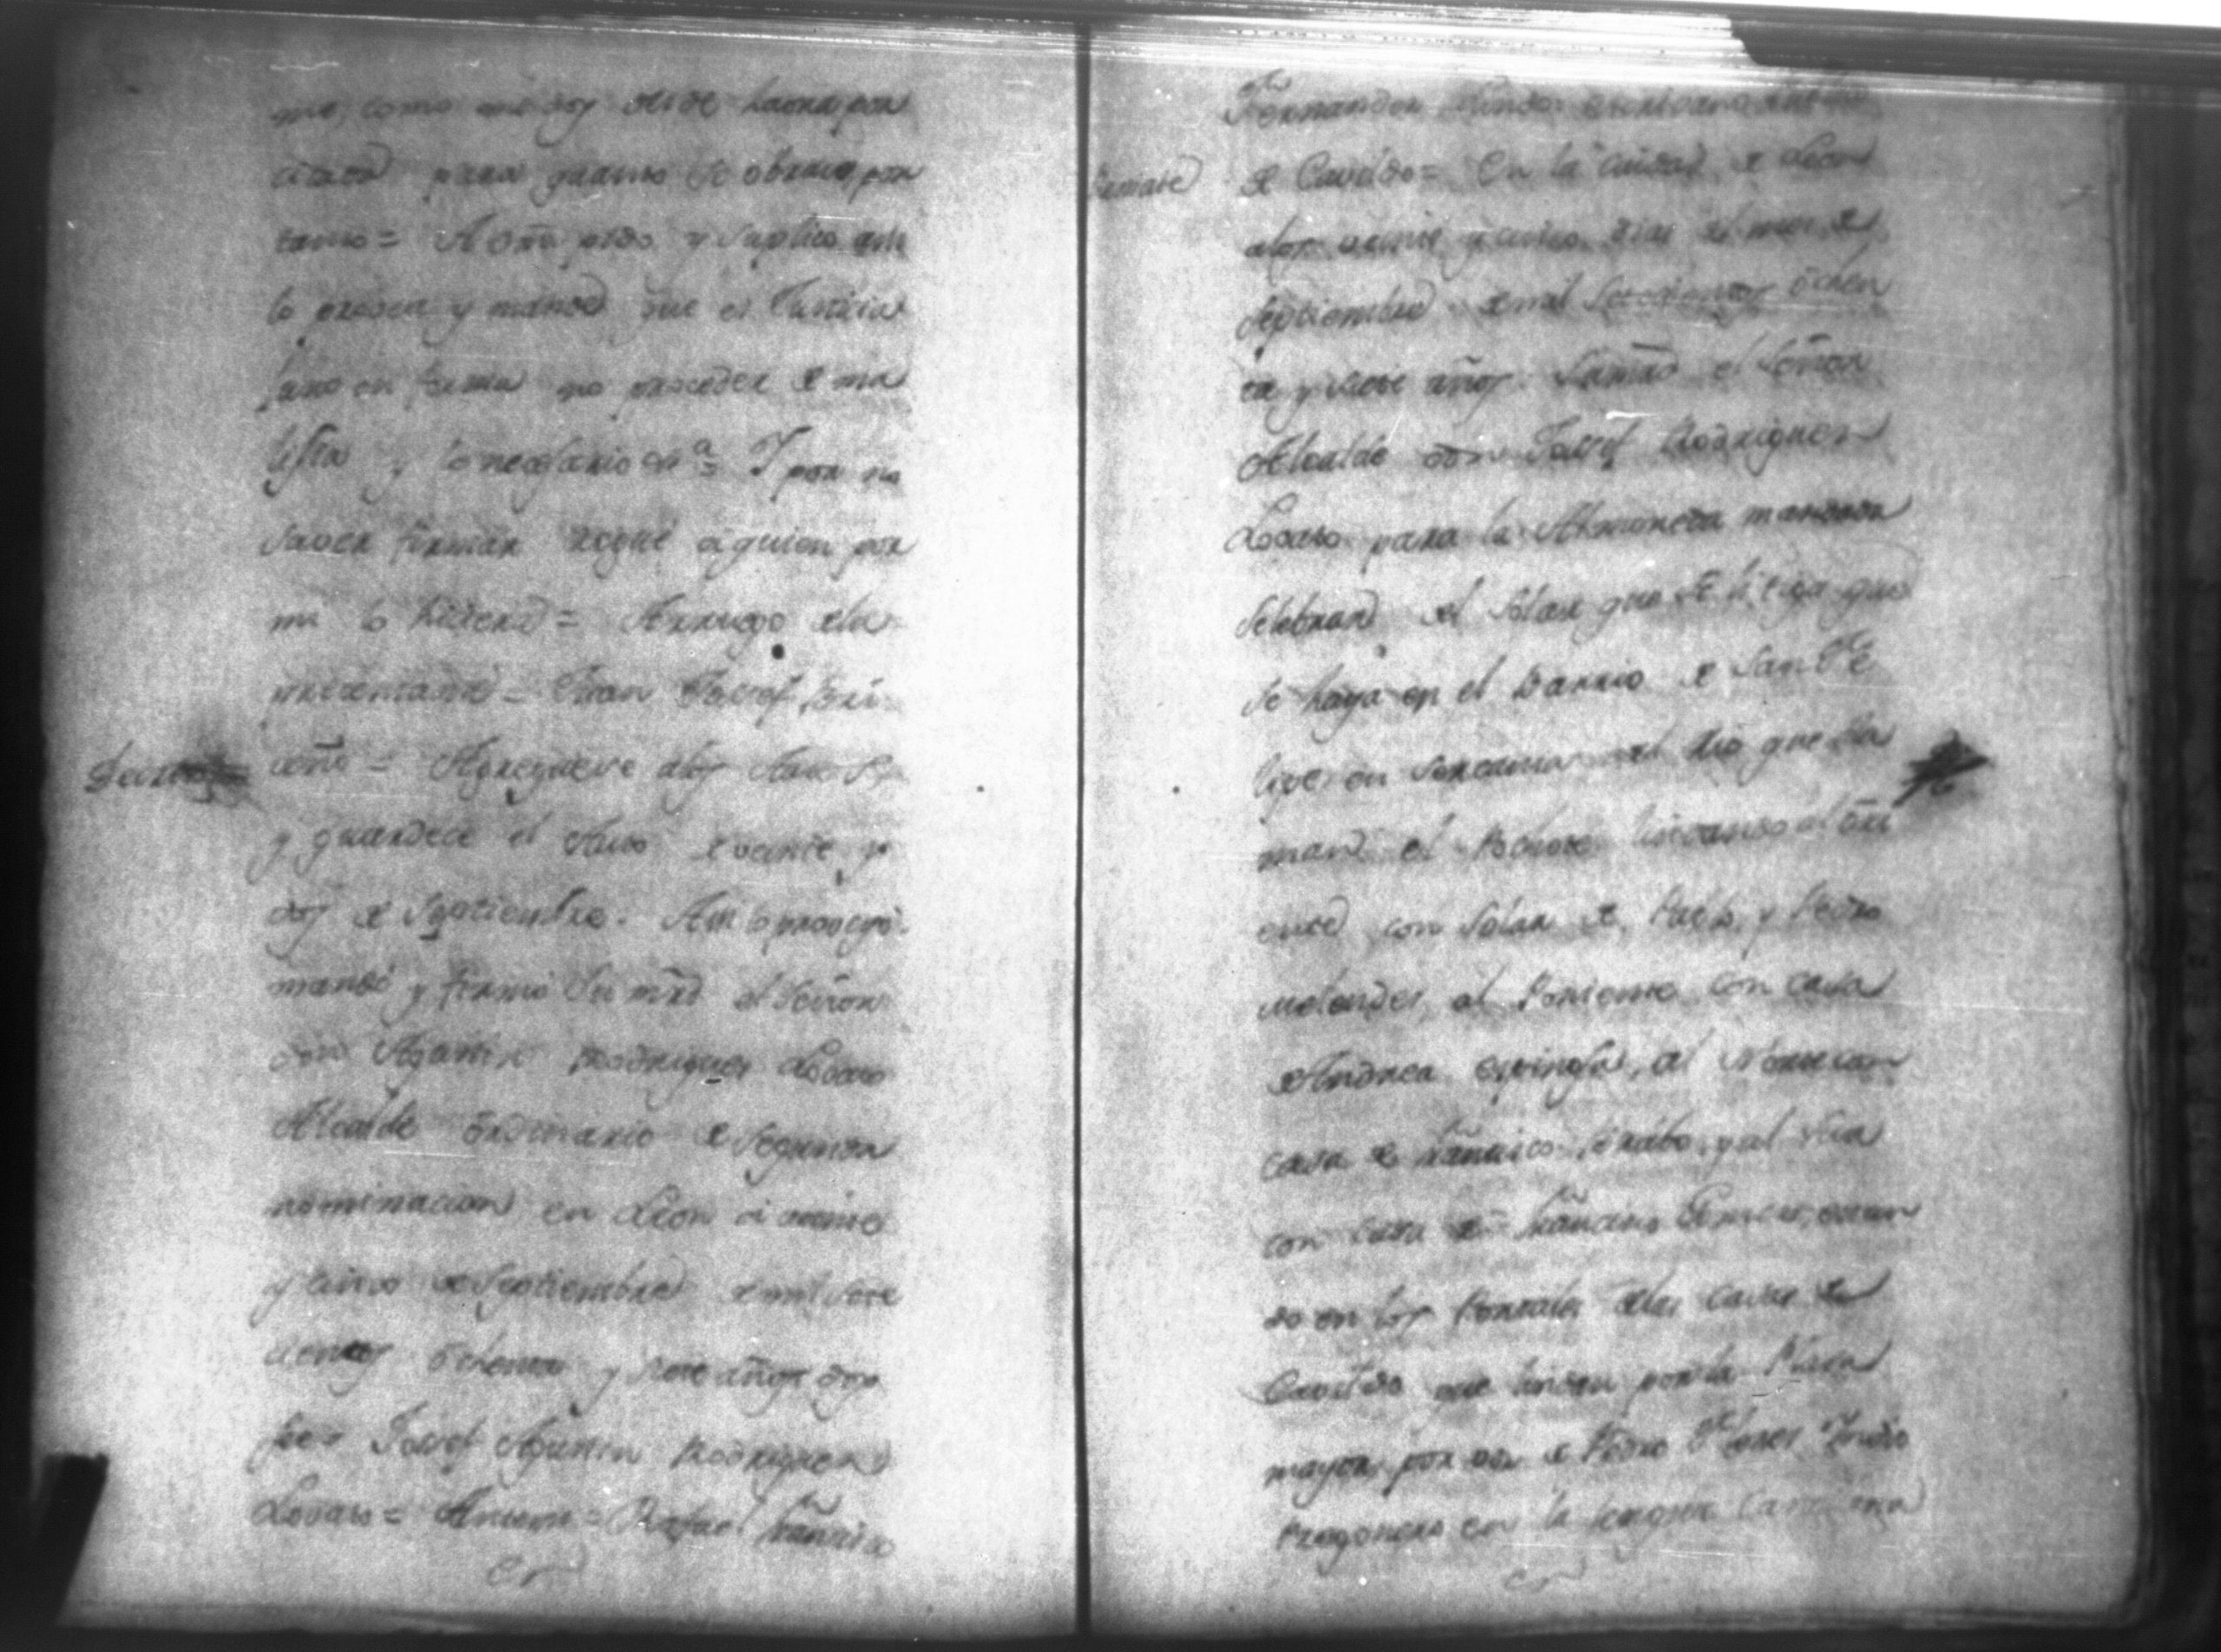 me, como me doy desde haora por
citado para quanto se obrare por
tanto = A Vm̃ pido y suplico asi
lo provea y mande que es Justicia
juro en forma no proceder de ma
lisia y lo necesario etª = Y por no
saver firmar rogué á quien por
mi lo hiciera = Arruego dela
precentada = Juan Josef Bri
ceño = Agreguese alos Autos
y guardece el Auto de veinte y
dos de Septiembre. Asi lo proveyó
mandó y firmó Su mrd el Señor
dn̄ Agustin Rodriguez Lovato
Alcalde ordinario de Segunda
nominacion en Leon á veinte
y cinco de Septiembre de mil sete
cientos ochenta y siete años doy
fee = Josef Agustin Rodriguez
Lovato = Antemi = Rafael Francisco
Fernandez escrivano
Remate
de Cavildo = En la ciudad de Leon
alos veinte y cinco dias del mes de
Septiembre de mil setecientos ochen
ta y siete años. el Señor
Alcalde don Josef Rodriguez
Lovato para la Almoneda mandada
selebrar del Solar que se litiga que
se haya en el Barrio de San Fe
lipe en sercanias al rio que lla
man el Pochote lindando al ori
ente con Solar de Pablo, y Pedro
Melendes, al Poniente con casa
de Andrea Espinosa, al Norte con
casa de Francisco y al Sur
con casa de Francisco estan
do en los Portales delas casas de
Cavildo que lindan por la Plaza
mayor, por vos de Pedro Flores Yndio
Pregonero en la lengua Castellana